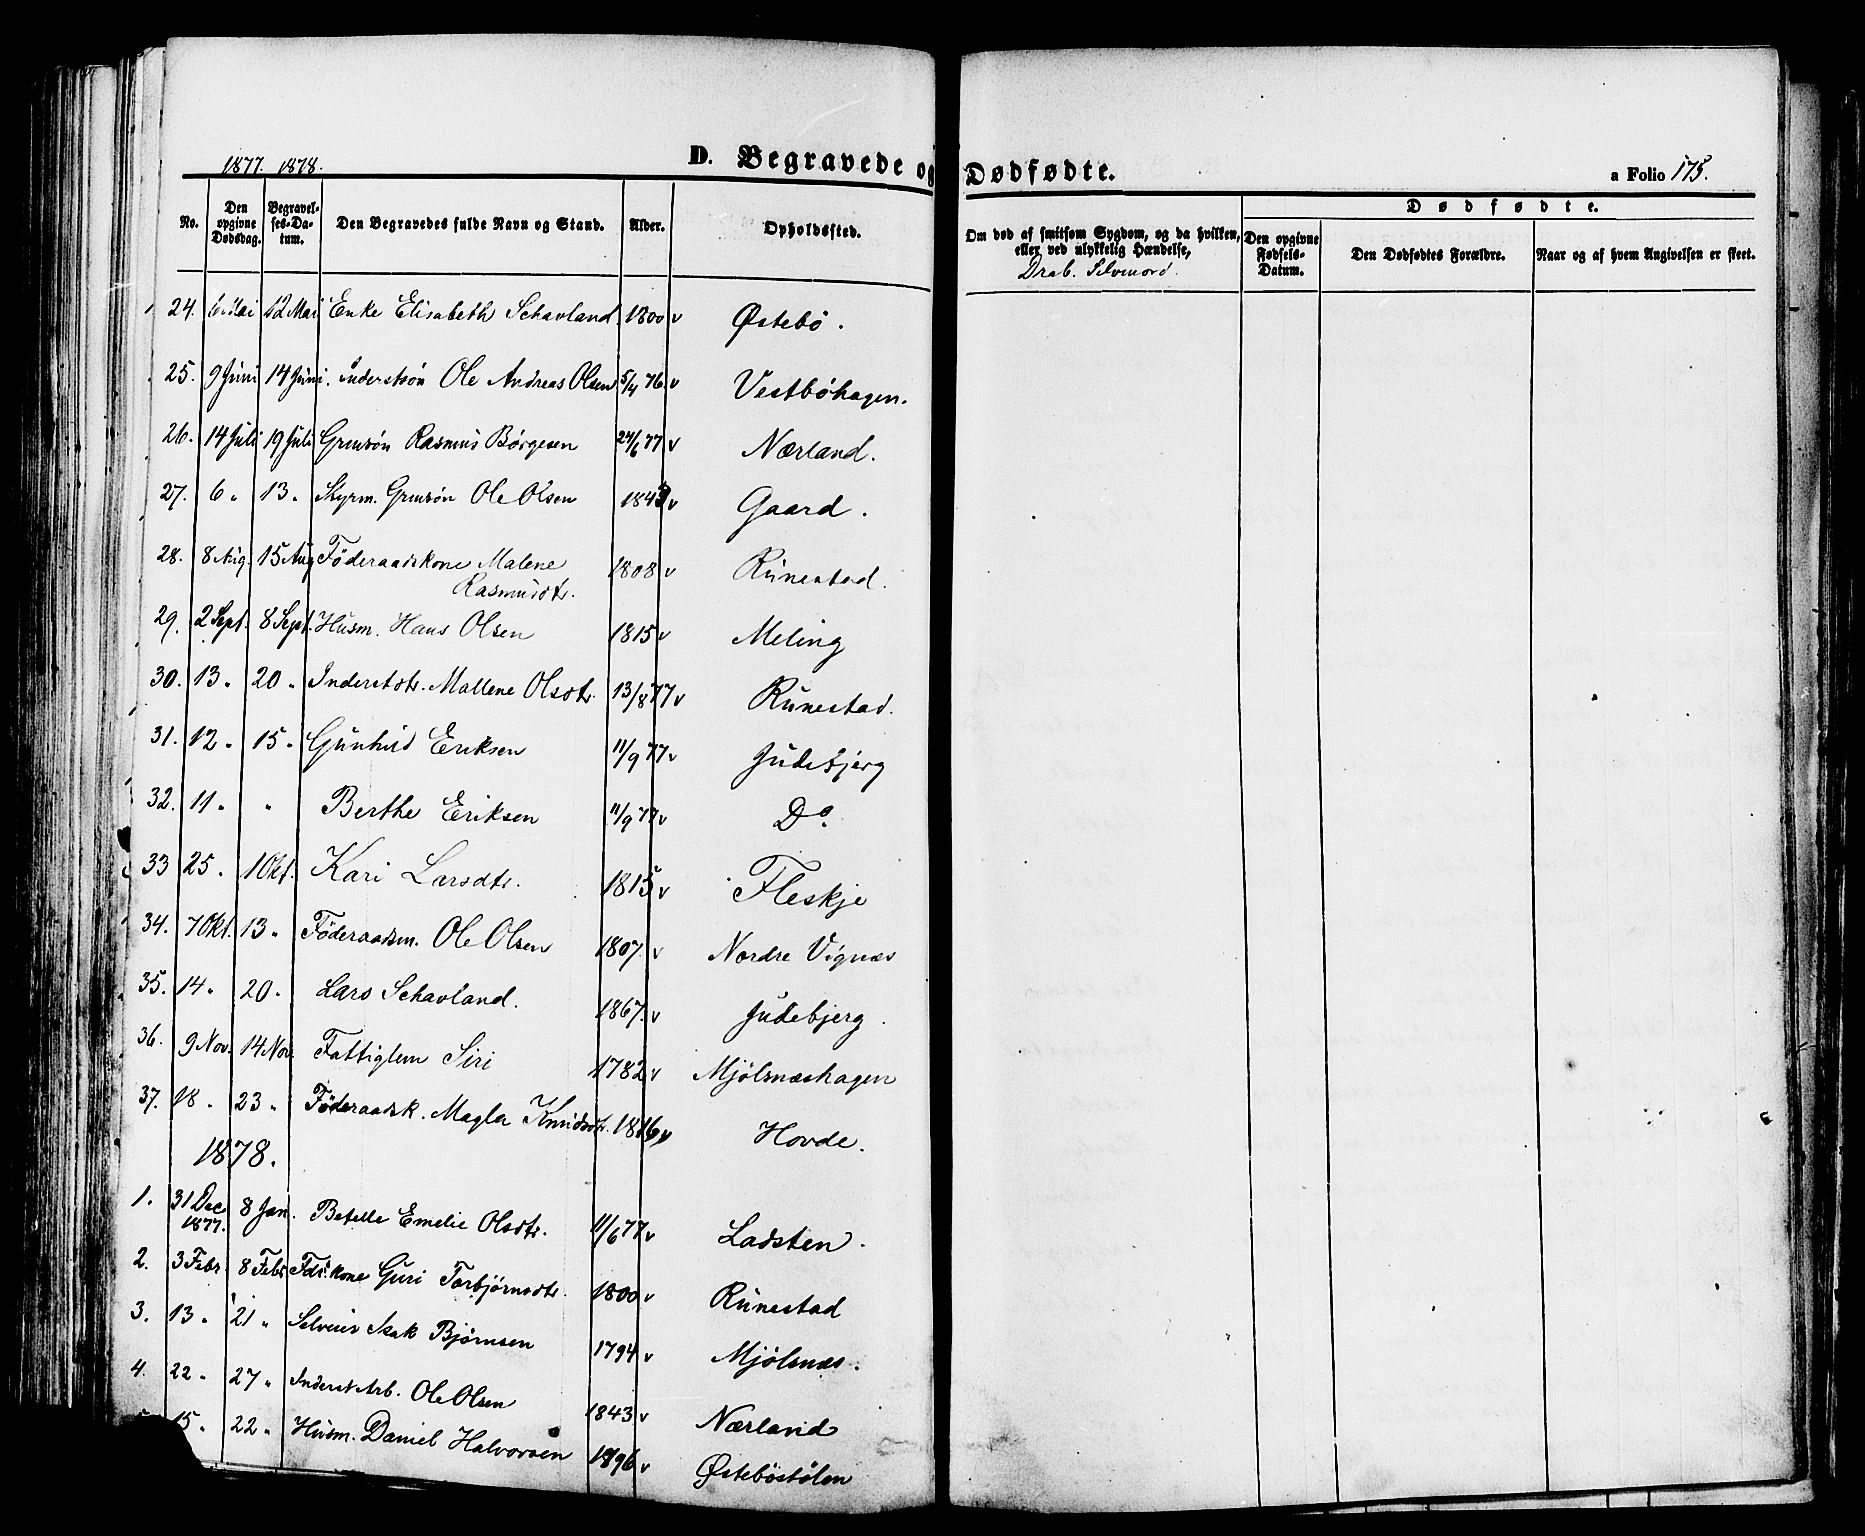 1877. 1878.
D. Begravede og Dødfødte.
a Folio 175.
No.
Den opgivne Dødsdag.
Begravelses-Datum.
Den Begravedes fulde Navn og Stand.
Alder.
Opholdssted.
Om død af smitsom Sygdom, og da hvilken, eller ved ulykkelig Hændelse,
Drab. Selvmord.
Dødfødte.
Den opgivne Fødsels-Datum.
Den Dødfødtes Forældre.
Naar og af hvem Angivelsen er skeet.
24. 6 Mai 12 Mai Enke Elisabeth Schavland 1800 v Østebö.
25. 9 Juni 14 Juni. Inderstsön Ole Andreas Olsen 5/4 76. v Vestböhagen.
26. 14 Juli 19 Juli Grmsön Rasmus Börgesen 24/6 77 v Nærland.
27. 6 " 13 " Styrm. Grmsön Ole Olsen 1843 v Gaard.
28. 8 Aug. 15 Aug Föderaadskone Malene
Rasmusdtr. 1808 v Runestad.
29. 2 Sept. 8 Sept. Husm. Hans Olsen 1815 v Meling
30. 13 " 20 " Inderstdtr. Mallene Olsdtr. 13/8 77 v Runestad.
31. 12 " 15 " Gunhild Eriksen 11/9 77 v Judebjerg
32. 11 " " Berthe Eriksen 11/9 77 v Do.
33 25 " 1 Okt. Kari Larsdtr. 1815 v Fleskje
34. 7 Okt. 13 " Föderaadsm. Ole Olsen 1807 v Nordre Vignæs
35. 14 " 20 " Lars Schavland. 1867. v Judebjerg.
36. 9 Nov. 14 Nov. Fattiglem Siri 1782 v Mjölsnæshagen
37. 18 " 23 " Föderaadsk. Magla Knudsdtr. 1816 v Hovde.
1878.
1. 31 Dec 1877. 8 Jan. Betelle Emelie Olsdtr. 11/6 77 v Ladsten.
2. 3 Febr. 8 Febr. Fdrskone Guri Torbjörnsdtr. 1800 v Runestad
3. 13 " 21 " Selveier Isak Bjørnsen 1794 v Mjölsnæs.
4. 22 " 27 " Inderst Arb. Ole Olsen 1843 v Nærland
15 " 22 " Husm. Daniel Halvorsen 1796 v Østeböstölen